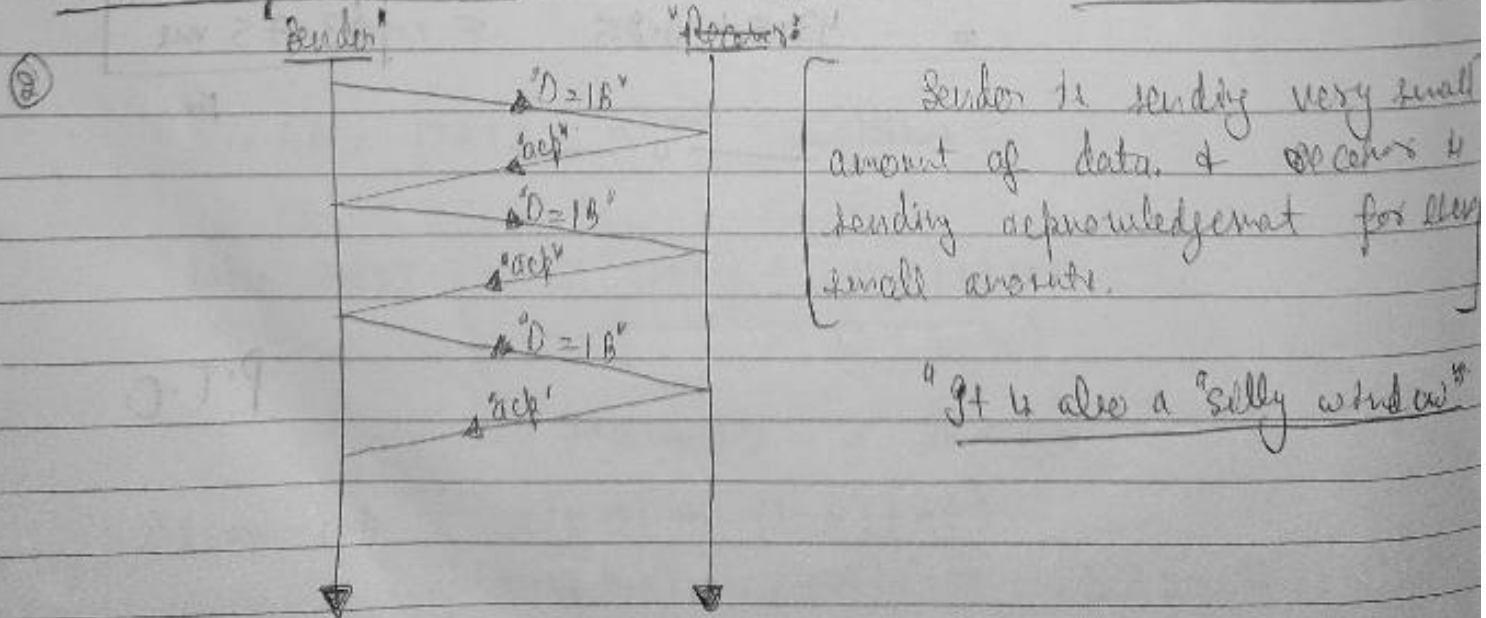 "Sender"
"Receiver"
②
"D = 1B"
"ack"
"D = 1B"
"ack"
"D = 1B"
"ack"
Sender is sending very small
amount of data. & receiver is
sending acknowledgemnat for every
small amounts.
"It is also a "silly window"
P.T.O